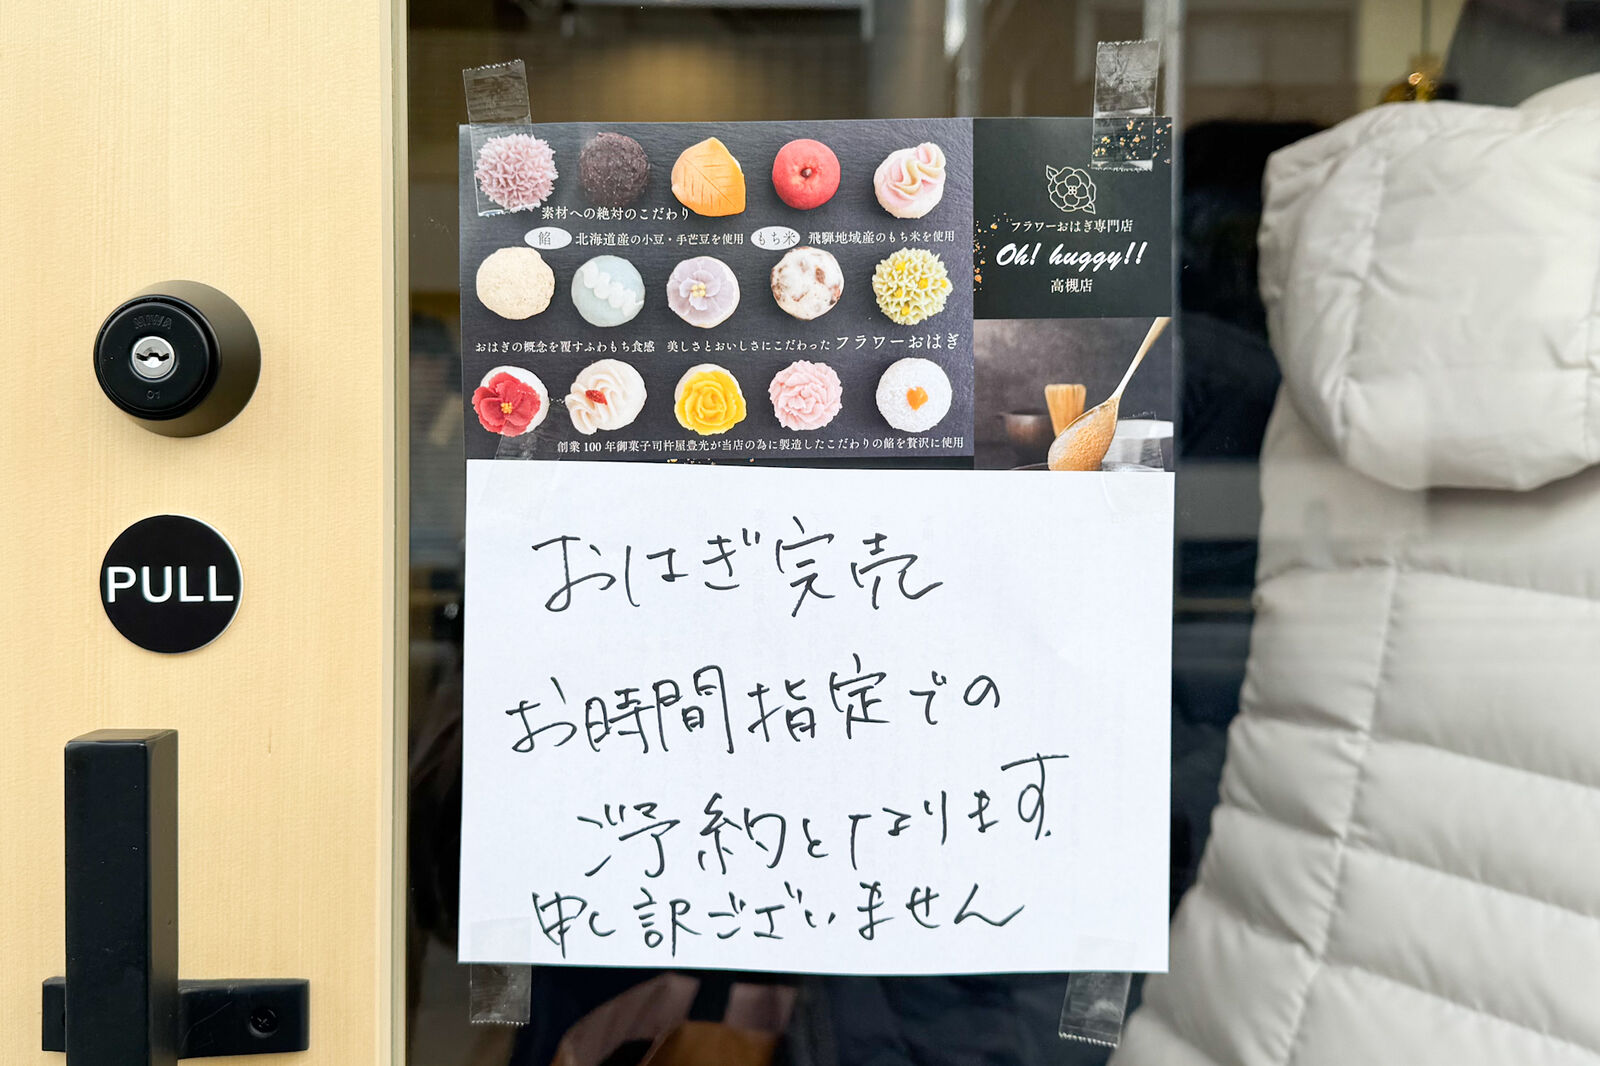 MIWA
01
PULL
素材への絶対のこだわり
餡 北海道産の小豆・手芒豆を使用 もち米 飛騨地域産のもち米を使用
おはぎの概念を覆すふわもち食感 美しさとおいしさにこだわった フラワーおはぎ
創業100年御菓子司杵屋豊光が当店の為に製造したこだわりの餡を贅沢に使用
フラワーおはぎ専門店
Oh! huggy!!
高槻店
おはぎ完売
お時間指定での
ご予約となります
申し訳ございません